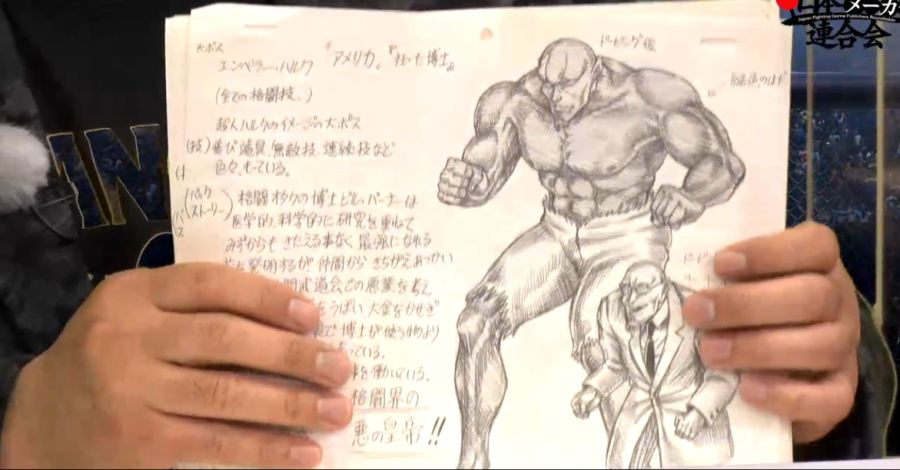 大ボス
エンペラー・ハルク 『アメリカ』『狂った博士』
(全ての格闘技、)
超人ハルクのイメージの大ボス
(技)飛び道具、無敵技、連続技など
色々もっている。
ストーリー
格闘オタクの博士ビル・バーナーは
医学的、科学的に研究を重ねて
みずからもきたえる事なく最強になれる
を発明するが仲間からきちがいあつかい
闘武道会での悪業を考え
をうばい、大金をかせぎ
で博士が使う物より
っている。
を働いている。
格闘界の
悪の皇帝!!
ドーピング後
メーカー
Japan Fighting Game Publishers Roundtable
連合会